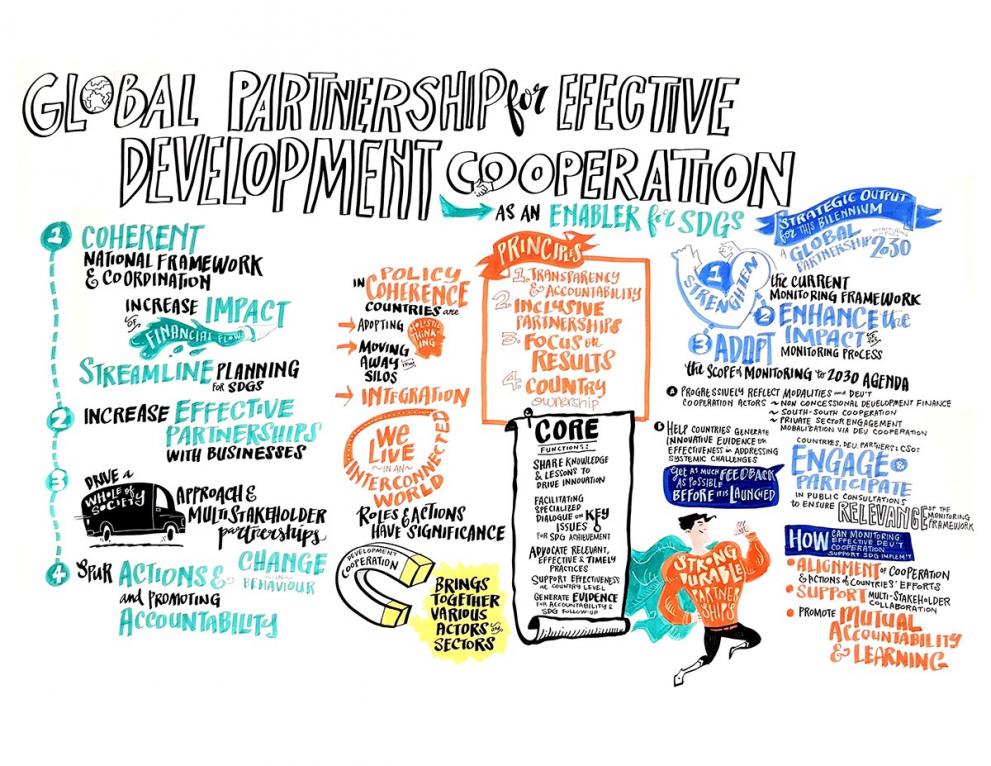 GLOBAL PARTNERSHIP for EFECTIVE
DEVELOPMENT COOPERATION
AS AN ENABLER for SDGS
1 COHERENT
NATIONAL FRAMEWORK
& COORDINATION
INCREASE IMPACT
OF FINANCIAL FLOW
STREAMLINE PLANNING
FOR SDGS
2 INCREASE EFFECTIVE
PARTNERSHIPS
WITH BUSINESSES
3 DRIVE A
WHOLE OF
SOCIETY
APPROACH &
MULTISTAKEHOLDER
partnerships
4 SPUR ACTIONS & CHANGE
IN
BEHAVIOUR
and PROMOTING
ACCOUNTABILITY
IN POLICY
COHERENCE
COUNTRIES are
ADOPTING HOLISTIC
THINK
ING
MOVING
AWAY FROM
SILOS
INTEGRATION
WE
LIVE
IN AN
INTERCONNECTED
WORLD
ROLES & ACTIONS
HAVE SIGNIFICANCE
DEVELOPMENT
COOPERATION
BRINGS
TOGETHER
VARIOUS
ACTORS
SECTORS
PRINCIPLES
1. TRANSPARENCY
& ACCOUNTABILITY
2. INCLUSIVE
PARTNERSHIPS
3. FOCUS on
RESULTS
4. COUNTRY
ownership
CORE
FUNCTIONS:
SHARE KNOWLEDGE
& LESSONS TO
DRIVE INNOVATION
FACILITATING
SPECIALIZED
DIALOGUE on KEY
ISSUES
FOR SDG ACHIEVEMENT
ADVOCATE RELEVANT,
EFFECTIVE & TIMELY
PRACTICES
SUPPORT EFFECTIVENESS
at COUNTRY LEVEL
GENERATE EVIDENCE
FOR ACCOUNTABILITY &
SDG FOLLOW-UP
STRATEGIC OUTPUT
for THIS BILENNIUM
A GLOBAL
PARTNERSHIP 2030
1 STRENGTHEN
the CURRENT
MONITORING FRAMEWORK
2 ENHANCE the
IMPACT OF the
MONITORING PROCESS
3 ADAPT
the SCOPE of MONITORING to 2030 AGENDA
A PROGRESSIVELY REFLECT MODALITIES and DEV'T
COOPERATION ACTORS ~ NON CONCESSIONAL DEVELOPMENT FINANCE
~ SOUTH-SOUTH COOPERATION
~ PRIVATE SECTOR ENGAGEMENT
MOBILIZATION VIA DEV COOPERATION
HELP COUNTRIES GENERATE
INNOVATIVE EVIDENCE on
EFFECTIVENESS in ADDRESSING
SYSTEMIC CHALLENGES
GET AS MUCH FEEDBACK
AS POSSIBLE
BEFORE IT IS LAUNCHED
COUNTRIES, DEV. PARTNERS, CSOs
ENGAGE &
PARTICIPATE
IN PUBLIC CONSULTATIONS
to ENSURE RELEVANCE OF THE
MONITORING
FRAMEWORK
STRONG
DURABLE
PARTNER
SHIPS
HOW CAN MONITORING
EFFECTIVE DEV'T
COOPERATION
SUPPORT SDG IMPLEM'T
• ALIGNMENT of COOPERATION
& ACTIONS of COUNTRIES' EFFORTS
• SUPPORT MULTI-STAKEHOLDER
COLLABORATION
• PROMOTE MUTUAL
ACCOUNTABILITY
& LEARNING